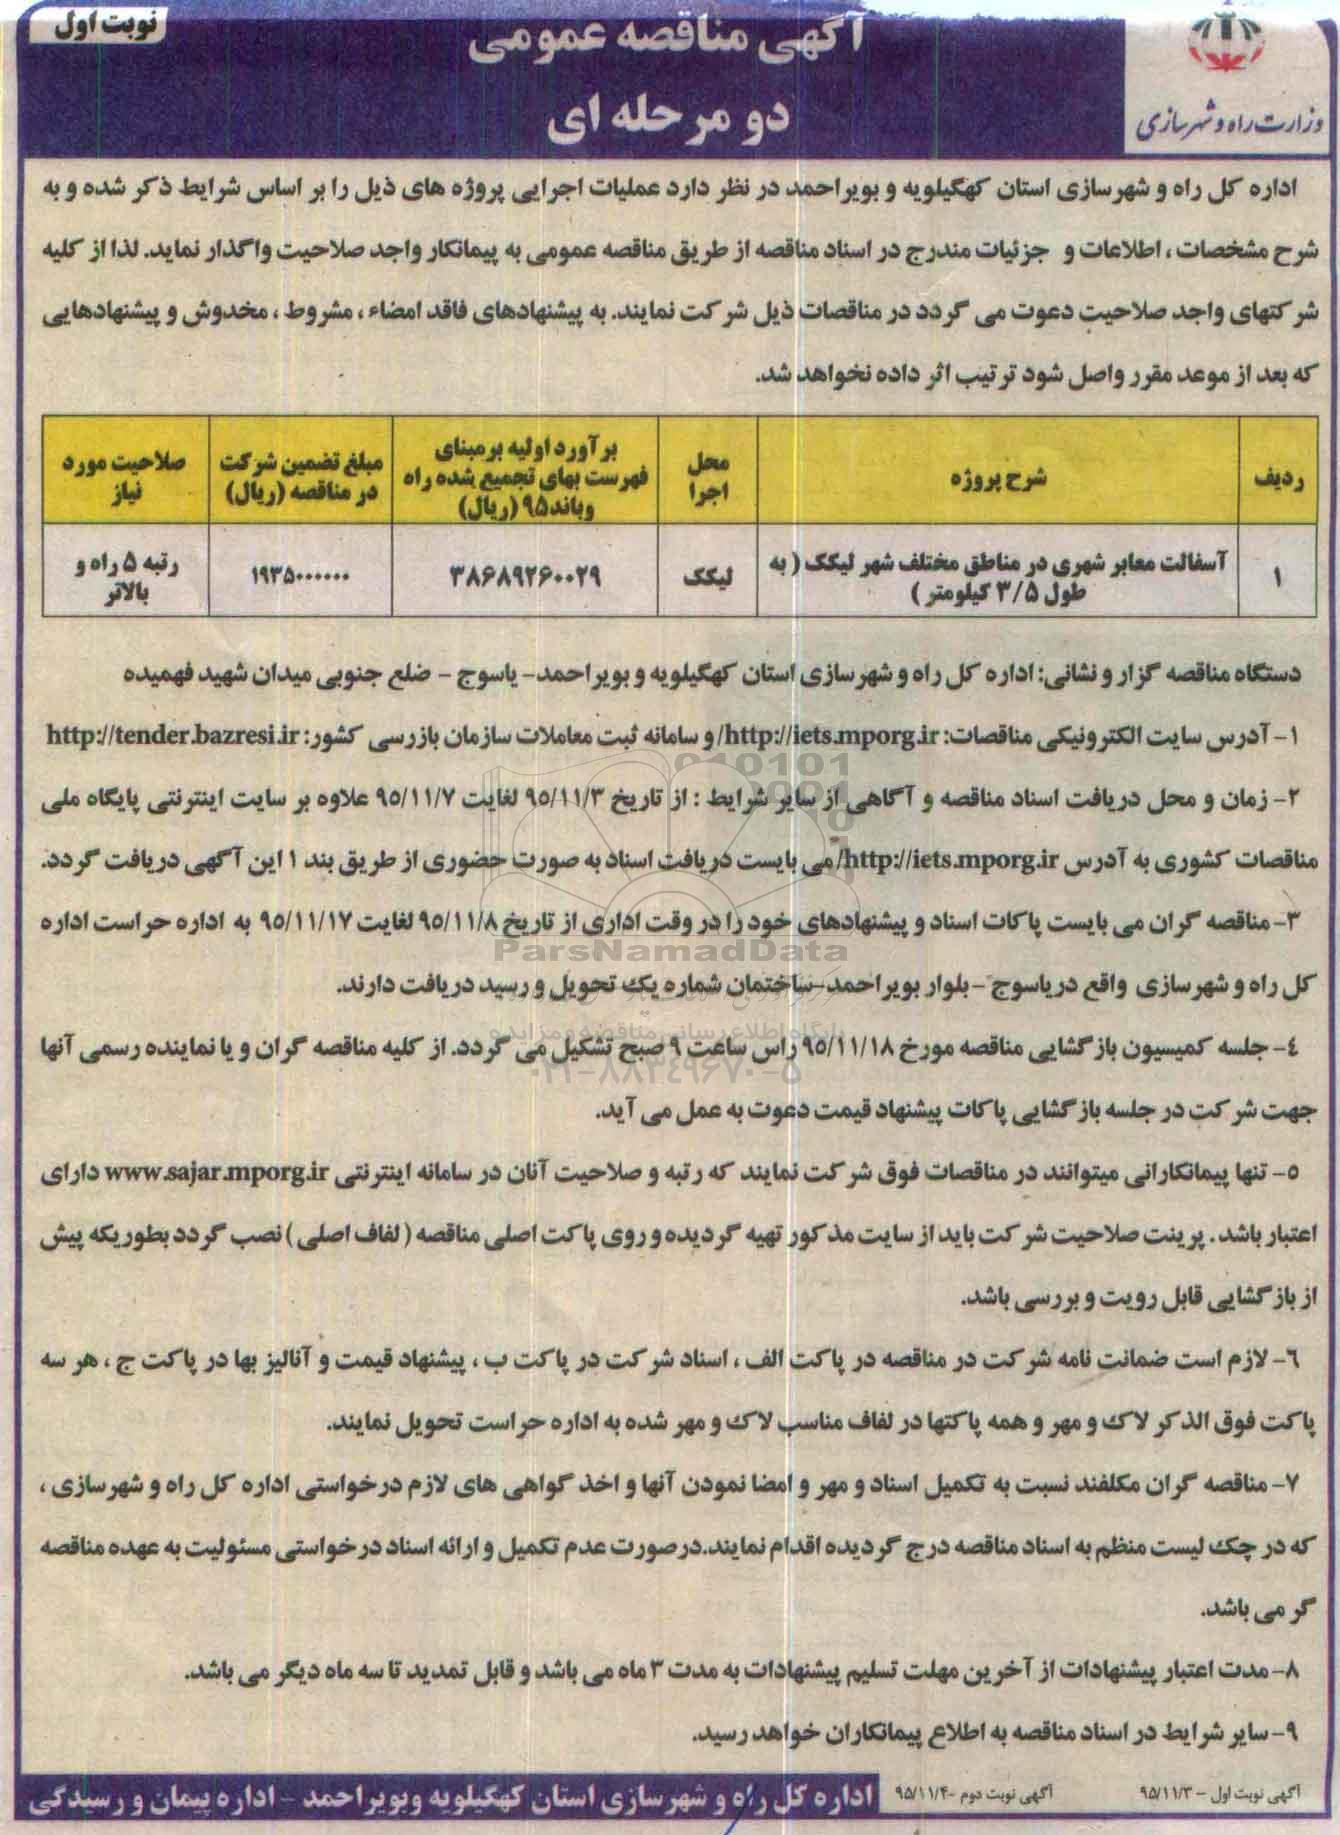 نوبت اول
آگهی مناقصه عمومی
دو مرحله ای
وزارت راه و شهرسازی
اداره کل راه و شهرسازی استان کهگیلویه و بویراحمد در نظر دارد عملیات اجرایی پروژه های ذیل را بر اساس شرایط ذکر شده و به
شرح مشخصات ، اطلاعات و جزئیات مندرج در اسناد مناقصه از طریق مناقصه عمومی به پیمانکار واجد صلاحیت واگذار نماید. لذا از کلیه
شرکتهای واجد صلاحیت دعوت می گردد در مناقصات ذیل شرکت نمایند. به پیشنهادهای فاقد امضاء ، مشروط ، مخدوش و پیشنهادهایی
که بعد از موعد مقرر واصل شود ترتیب اثر داده نخواهد شد.
ردیف
شرح پروژه
محل
اجرا
برآورد اولیه برمبنای
فهرست بهای تجمیع شده راه
وباند۹۵ (ریال)
مبلغ تضمین شرکت
در مناقصه (ریال)
صلاحیت مورد
نیاز
۱
آسفالت معابر شهری در مناطق مختلف شهر لیکک ( به
طول ۳/۵ کیلومتر )
لیکک
۳۸۶۸۹۲۶۰۰۲۹
۱۹۳۵۰۰۰۰۰۰
رتبه ۵ راه و
بالاتر
دستگاه مناقصه گزار و نشانی: اداره کل راه و شهرسازی استان کهگیلویه و بویراحمد- یاسوج - ضلع جنوبی میدان شهید فهمیده
۱- آدرس سایت الکترونیکی مناقصات: http://iets.mporg.ir/ و سامانه ثبت معاملات سازمان بازرسی کشور: http://tender.bazresi.ir
۲- زمان و محل دریافت اسناد مناقصه و آگاهی از سایر شرایط : از تاریخ ۹۵/۱۱/۳ لغایت ۹۵/۱۱/۷ علاوه بر سایت اینترنتی پایگاه ملی
مناقصات کشوری به آدرس http://iets.mporg.ir/ می بایست دریافت اسناد به صورت حضوری از طریق بند ۱ این آگهی دریافت گردد.
۳- مناقصه گران می بایست پاکات اسناد و پیشنهادهای خود را در وقت اداری از تاریخ ۹۵/۱۱/۸ لغایت ۹۵/۱۱/۱۷ به اداره حراست اداره
ParsNamadData
کل راه و شهرسازی واقع در یاسوج - بلوار بویراحمد-ساختمان شماره یک تحویل و رسید دریافت دارند.
پایگاه اطلاع رسانی مناقصه و مزایده
۴- جلسه کمیسیون بازگشایی مناقصه مورخ ۹۵/۱۱/۱۸ راس ساعت ۹ صبح تشکیل می گردد. از کلیه مناقصه گران و یا نماینده رسمی آنها
۰۲۱-۸۸۳۴۹۶۷۰-۵
جهت شرکت در جلسه بازگشایی پاکات پیشنهاد قیمت دعوت به عمل می آید.
۵- تنها پیمانکارانی میتوانند در مناقصات فوق شرکت نمایند که رتبه و صلاحیت آنان در سامانه اینترنتی www.sajar.mporg.ir دارای
اعتبار باشد . پرینت صلاحیت شرکت باید از سایت مذکور تهیه گردیده و روی پاکت اصلی مناقصه ( لفاف اصلی ) نصب گردد بطوریکه پیش
از بازگشایی قابل رویت و بررسی باشد.
۶- لازم است ضمانت نامه شرکت در مناقصه در پاکت الف ، اسناد شرکت در پاکت ب ، پیشنهاد قیمت و آنالیز بها در پاکت ج ، هر سه
پاکت فوق الذکر لاک و مهر و همه پاکتها در لفاف مناسب لاک و مهر شده به اداره حراست تحویل نمایند.
۷- مناقصه گران مکلفند نسبت به تکمیل اسناد و مهر و امضا نمودن آنها و اخذ گواهی های لازم درخواستی اداره کل راه و شهرسازی ،
که در چک لیست منظم به اسناد مناقصه درج گردیده اقدام نمایند.درصورت عدم تکمیل و ارائه اسناد درخواستی مسئولیت به عهده مناقصه
گر می باشد.
۸- مدت اعتبار پیشنهادات از آخرین مهلت تسلیم پیشنهادات به مدت ۳ ماه می باشد و قابل تمدید تا سه ماه دیگر می باشد.
۹- سایر شرایط در اسناد مناقصه به اطلاع پیمانکاران خواهد رسید.
آگهی نوبت اول - ۹۵/۱۱/۳
آگهی نوبت دوم -۹۵/۱۱/۴
اداره کل راه و شهرسازی استان کهگیلویه وبویراحمد - اداره پیمان و رسیدگی